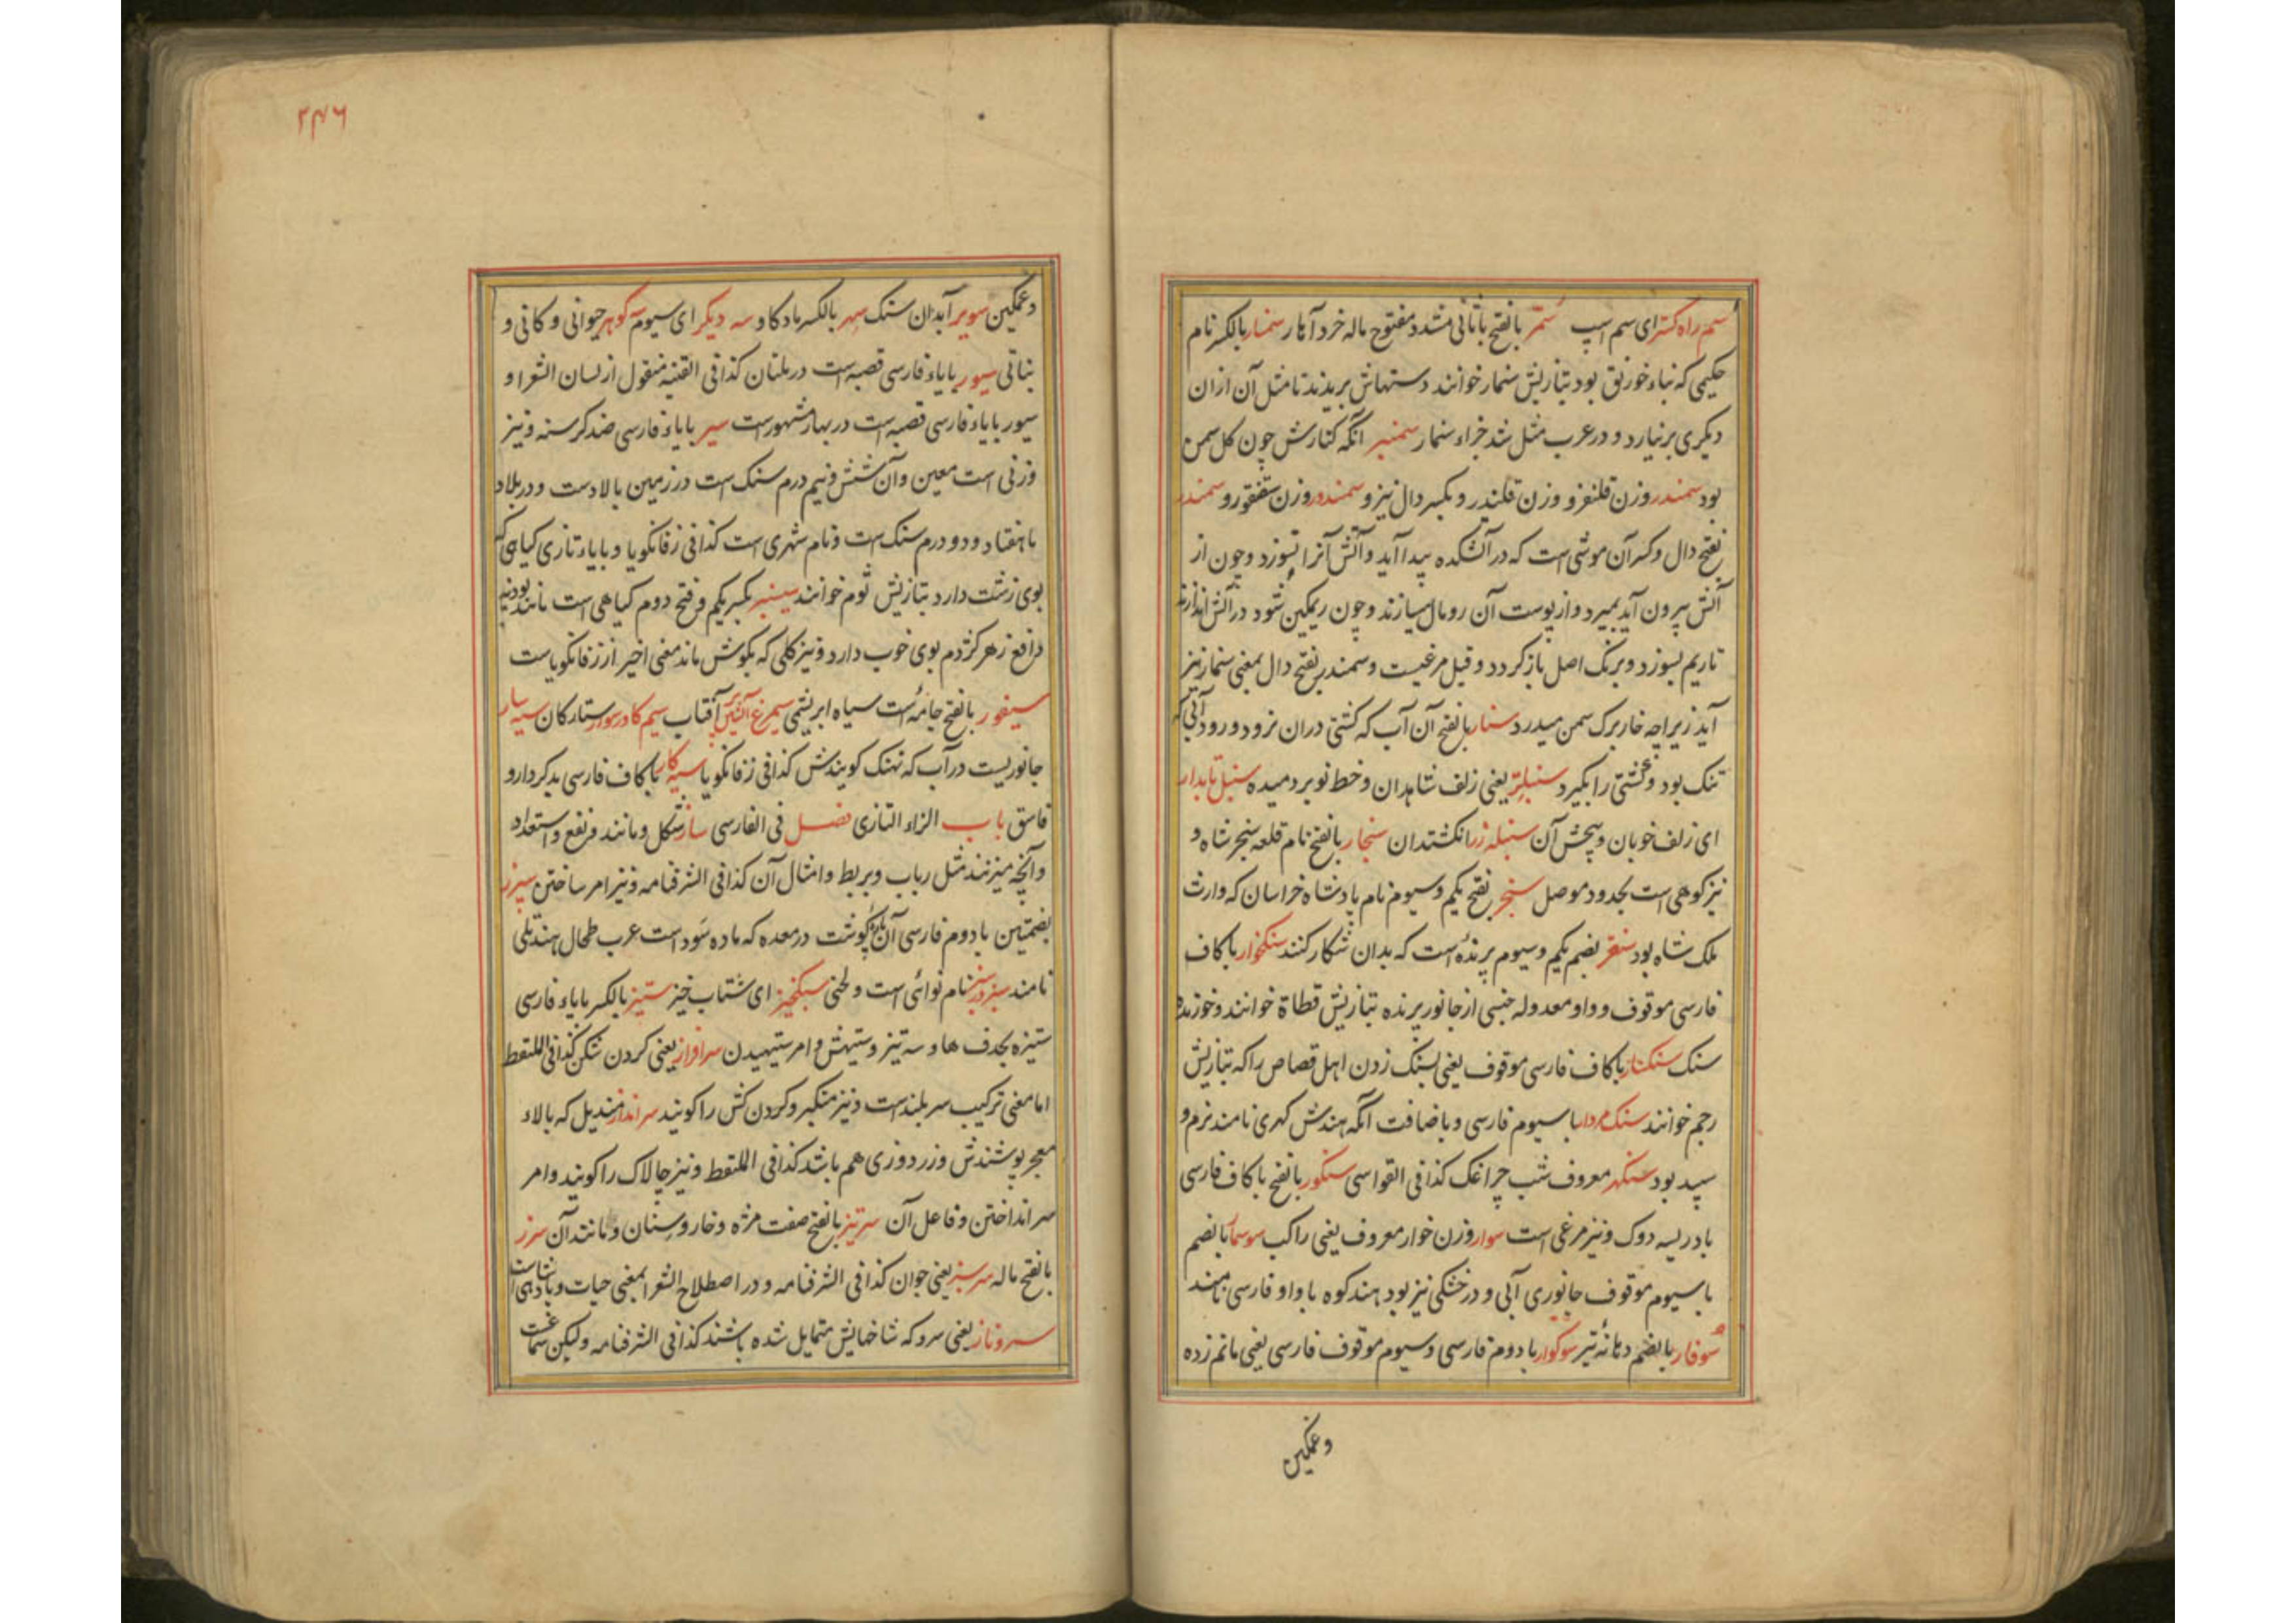 سم راه کستر ای سم اسپ سمر بالفتح با ثانی مشدد مفتوح ماله خرد آهار سنمار بالکسر نام
حکیمی که بناء خورنق بود بتازیش سنمار خوانند دستهاش بریدند تا مثل آن ازان
دیکری برنیارد و در عرب مثل شد جزاء سنمار سمنبر آنکه کنارش چون کل سمن
بود سمندر وزن قلنغز و وزن قلندر و بکسر دال نیز و سمندور وزن سقنقور و سمندر
بفتح دال و کسر آن موشی است که در آتشکده پیدا آید و آتش آنرا نسوزد و چون از
آتش بیرون آید بمیرد و از پوست آن رومال میسازند و چون ریمکین شود در آتش اندازند
تا ریم بسوزد و برنک اصل باز کردد و قیل مرغیست و سمندر بفتح دال بمعنی سنمار نیز
آید زیراچه خار برک سمن میدرد سنار بالفتح آن آب که کشتی دران نرود و رود آبی که
تنک بود و کشتی را بکیرد سنبل تر یعنی زلف شاهدان و خط نو بردمیده سنبل تابدار
ای زلف خوبان و پیچش آن سنبله زر انکشتدان سنجار بالفتح نام قلعه سنجر شاه و
نیز کوهی است بحدود موصل سنجر بفتح یکم و سیوم نام پادشاه خراسان که وارث
ملک شاه بود سنقر بضم یکم و سیوم پرنده است که بدان شکار کنند سنکخوار با کاف
فارسی موقوف و واو معدوله جنسی از جانور پرنده بتازیش قطاة خوانند و خورنده
سنک سنکسار با کاف فارسی موقوف یعنی بسنک زدن اهل قصاص را که بتازیش
رجم خوانند سنک مردار با سیوم فارسی و باضافت آنکه هندش کهری نامند نرم و
سپید بود سنکهر معروف شب چراغک کذا فی القواسی سنکور بالفتح با کاف فارسی
بادریسه دوک و نیز مرغی است سوار وزن خوار معروف یعنی راکب سوسمار بالضم
با سیوم موقوف جانوری آبی و در خشکی نیز بود هند کوه با واو فارسی نامند
سوفار بالضم دهانه تیر سوکوار با دوم فارسی و سیوم موقوف فارسی یعنی ماتم زده
و غمکین
۲۴۶
و غمکین سویر آبدان سنک سهر بالکسر ماده کاو سه دیکر ای سیوم سه کوهر حیوانی و کانی و
نباتی سیور با یاء فارسی قصبه است در ملتان کذا فی القنیه منقول از لسان الشعرا و
سیور با یاء فارسی قصبه است در بهار مشهور است سیر با یاء فارسی ضد کرسنه و نیز
وزنی است معین و آن شش و نیم درم سنک است در زمین بالادست و در بلاد
ما هفتاد و دو درم سنک است و نام شهری است کذا فی زفانکویا و با یاء تازی کیاهی که
بوی زشت دارد بتازیش ثوم خوانند سیسنبر بکسر یکم و فتح دوم کیاهی است مانند پودنه
دافع زهر کژدم بوی خوب دارد و نیز کلی که بکوش ماند معنی اخیر از زفانکویاست
سیفور بالفتح جامه است سیاه ابریشمی سیمرغ آتشین پر آفتاب سیم کاورسوار ستارکان سیه سار
جانوریست در آب که نهنک کویندش کذا فی زفانکویا سیه کار با کاف فارسی بدکردار و
فاسق باب الزاء التازی فصل فی الفارسی ساز شکل و مانند و نفع و استعداد
و آنچه میزنند مثل رباب و بربط و امثال آن کذا فی الشرفنامه و نیز امر ساختن سپرز
بضمتین با دوم فارسی آن پاره کوشت در معده که ماده سودا است عرب طحال هند تلی
نامند سبز در سبز نام نوائی است و لحنی سبکخیز ای شتاب خیز ستیز بالکسر با یاء فارسی
ستیزه بحذف ها و سه تیز و ستیهش و امر ستیهیدن سرافراز یعنی کردن شکن کذا فی الملتقط
اما معنی ترکیب سربلند است و نیز متکبر و کردن کش را کویند سرانداز مندیل که بالاء
معجر پوشندش و زردوزی هم باشد کذا فی الملتقط و نیز چالاک را کویند و امر
سر انداختن و فاعل آن سرتیز بالفتح صفت مژه و خار و سنان و مانند آن سرز
بالفتح ماله سرسبز یعنی جوان کذا فی الشرفنامه و در اصطلاح الشعرا بمعنی حیات و
سروناز یعنی سرو که شاخهایش متمایل شده باشند کذا فی الشرفنامه و لیکن